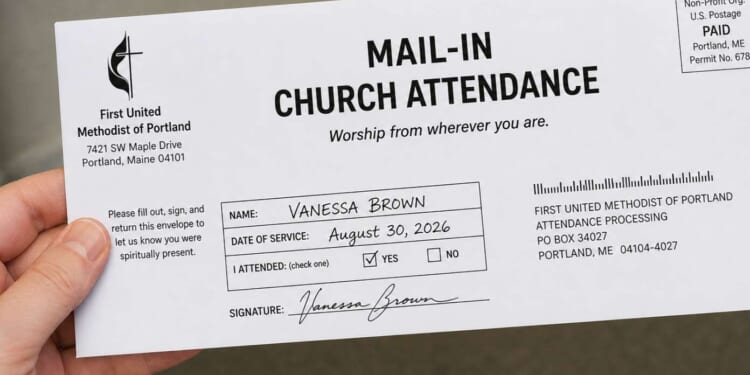 First United
Methodist of Portland
7421 SW Maple Drive
Portland, Maine 04101
MAIL-IN
CHURCH ATTENDANCE
Worship from wherever you are.
Non-Profit Org.
U.S. Postage
PAID
Portland, ME
Permit No. 678
Please fill out, sign, and
return this envelope to
let us know you were
spiritually present.
NAME: VANESSA BROWN
DATE OF SERVICE: August 30, 2026
I ATTENDED: (check one) YES NO
SIGNATURE: Vanessa Brown
FIRST UNITED METHODIST OF PORTLAND
ATTENDANCE PROCESSING
PO BOX 34027
PORTLAND, ME 04104-4027